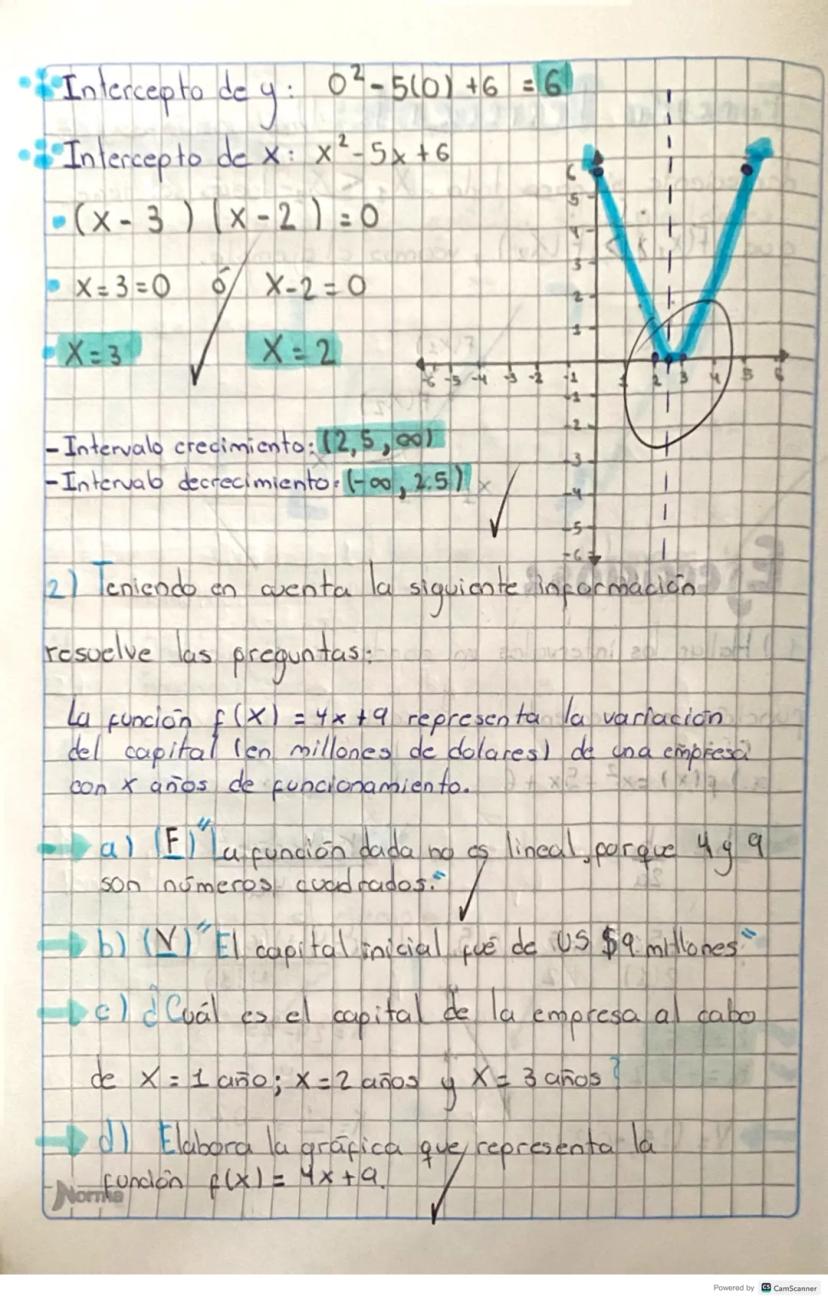 Intercepto de y: 0² - 5(0) + 6 = 6
Intercepto de x: x² - 5x + 6
(x - 3) (x - 2) = 0
x = 3 = 0 ó x - 2 = 0
x = 3 x = 2
- Intervalo crecimiento: (2,5, ∞)
- Intervalo decrecimiento: (-∞, 2.5)
6
5
4
3
2
1
-6 -5 -4 -3 -2 -1 1 2 3 4 5 6
-1
-2
-3
-4
-5
-6
2) Teniendo en cuenta la siguiente información
resuelve las preguntas:
La función f(x) = 4x + 9 representa la variación
del capital (en millones de dolares) de una empresa
con x años de funcionamiento.
a) (F) "La función dada no es lineal, porque 4 y 9
son números cuadrados."
b) (V) "El capital inicial fué de US $9 millones"
c) ¿Cuál es el capital de la empresa al cabo
de x = 1 año; x = 2 años y x = 3 años?
d) Elabora la gráfica que representa la
función f(x) = 4x + 9.
Norma
Powered by CS CamScanner